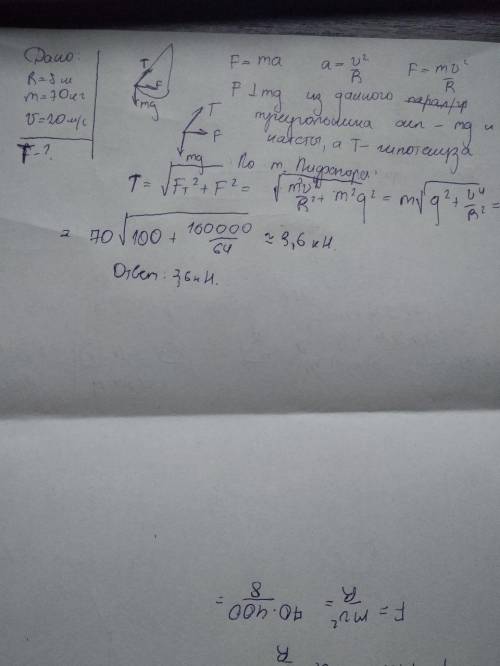 Дано:
R = 8 м
m = 70 кг
V = 20 м/с
F - ?
T
F
mg
T
F
mg
F = ma a = v²/R F = mv²/R
F ⊥ mg из данного
треугольника mg и
катеты, а T - гипотенуза
По т. Пифагора:
T = √(F_T² + F²) = √(m²v⁴/R² + m²g²) = m√(g² + v⁴/R²) =
= 70√(100 + 160000/64) ≈ 3,6 кН.
Ответ: 3,6 кН.
F = mv²/R = 70·400/8 =
R